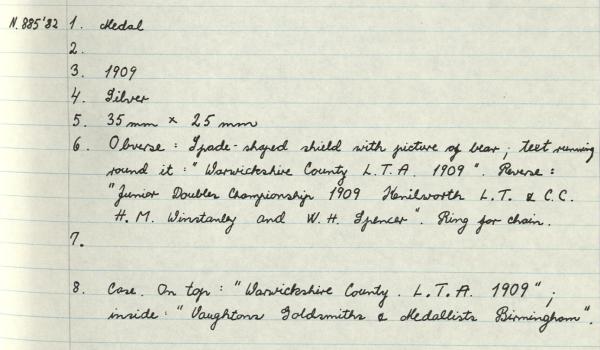 N.885'82 1. Medal
2.
3. 1909
4. Silver
5. 35mm × 25mm
6. Obverse: Spade-shaped shield with picture of bear; text running
round it: "Warwickshire County L.T.A. 1909". Reverse:
"Junior Doubles Championship 1909 Kenilworth L.T. & C.C.
H.M. Winstanley and W.H. Spencer". Ring for chain.
7.
8. Case. On top: "Warwickshire County. L.T.A. 1909";
inside: "Vaughtons Goldsmiths & Medallists Birmingham".